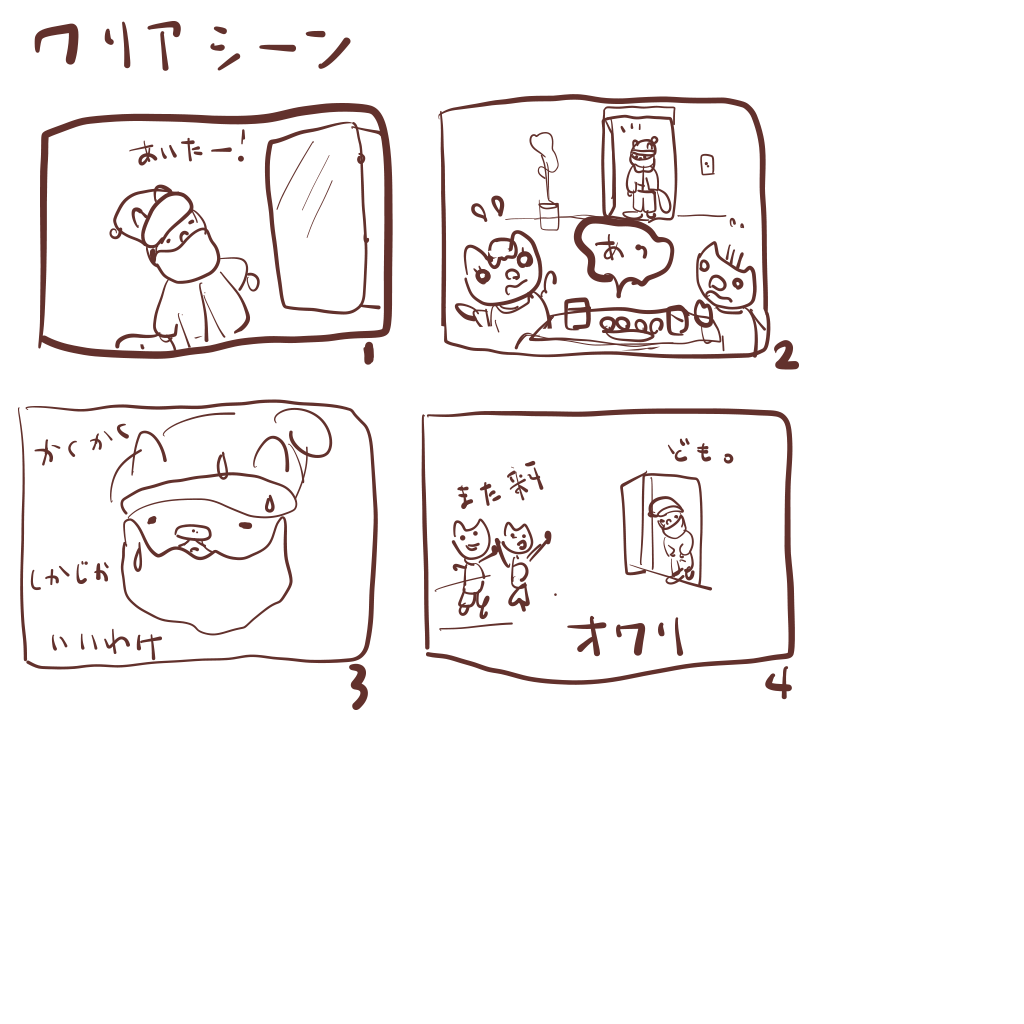 クリアシーン
あいたー!
1
あっ
2
かくかく
しかじか
いいわけ
3
ども。
また来年
オワリ
4